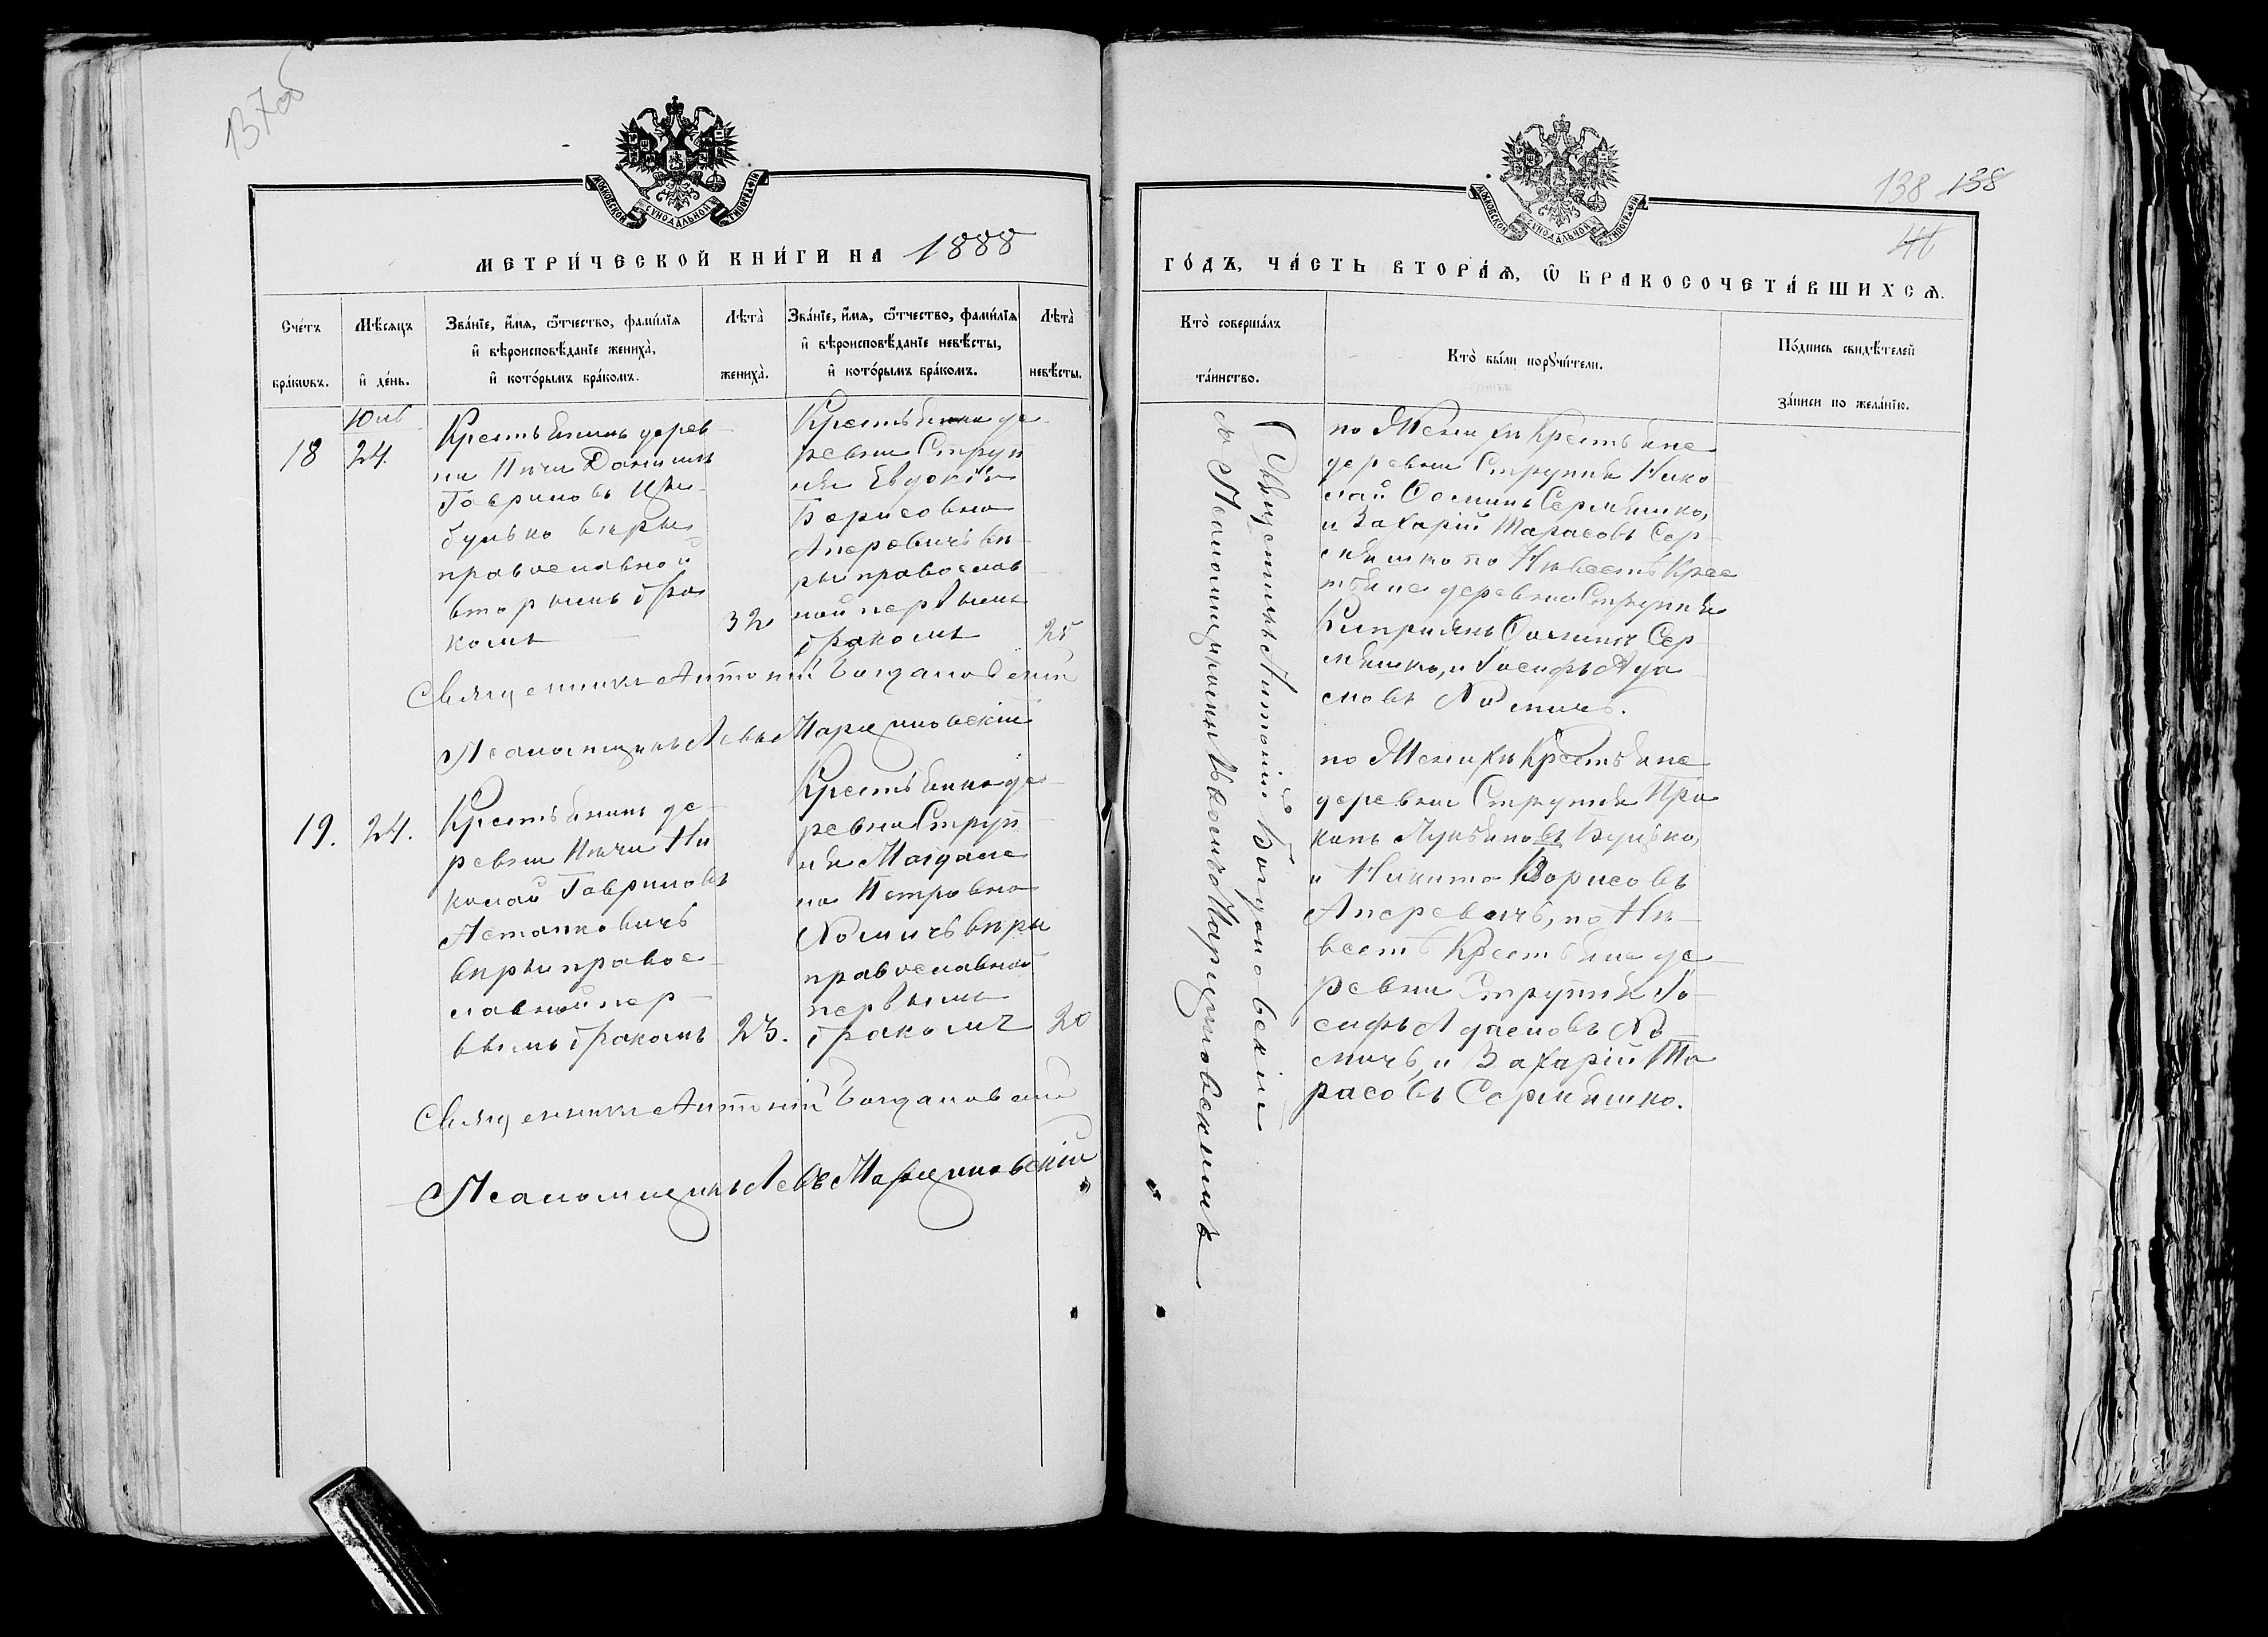 137об
МОСКОВСКОЙ СѴНОДАЛЬНОЙ ТИПОГРАФІИ
МЕТРИ́ЧЕСКОЙ КНИ́ГИ НА 1888
Сче́тъ бра́кѡвъ.
Мѣ́сяцъ и҆ де́нь.
Зва́нїе, и҆́мѧ, ѻ҆́тчество, фами́лїѧ
и҆ вѣроисповѣ́данїе жениха̀,
и҆ кото́рымъ бра́комъ.
Лѣта̀ жениха̀.
Зва́нїе, и҆́мѧ, ѻ҆́тчество, фами́лїѧ
и҆ вѣроисповѣ́данїе невѣ́сты,
и҆ кото́рымъ бра́комъ.
Лѣта̀ невѣ́сты.
18
24.
Крестьянинъ дерев
ни Пичи Даніилъ
Гавриловъ
булько вѣры
православной
вторымъ бра
комъ
32
Крестьянка де
ревни Струп
ня Евдокія
Борисовна
Аперевичъ вѣ
ры православ
ной первымъ
бракомъ
25
Священникъ Антоній Богдановскій
Псаломщикъ Левъ Марциновскій
19.
24.
Крестьянинъ де
ревни Пичи Ни
колай Гавриловъ
Астапковичъ
вѣры правос
лавной пер
вымъ бракомъ
23.
Крестьянка де
ревни Струп
ня Магдали
на Петровна
Хомичъ вѣры
православной
первымъ
бракомъ
20
Священникъ Антоній Богдановскій
Псаломщикъ Левъ Марциновскій
138 138
46
МОСКОВСКОЙ СѴНОДАЛЬНОЙ ТИПОГРАФІИ
ГО́ДЪ, ЧА́СТЬ ВТОРА́Ѧ, Ѽ БРАКОСОЧЕТА́ВШИХСѦ.
Кто̀ соверша́лъ та́инство.
Кто̀ бы́ли порꙋчи́тели.
По́дпись свидѣ́телей
за́писи по жела́нїю.
Священникъ Антоній Богдановскій
съ Псаломщикомъ Львомъ Марциновскимъ
по Женихѣ Крестьяне
деревни Струпня Нико
лай Ѳоминъ Сермяшко,
и Захарій Тарасовъ Сер
мяшко по Невѣстѣ Крес
тьяне деревни Струпня
Кипріянъ Ѳоминъ Сер
мяшко, и Іосифъ Ада
мовъ Хомичъ.
по Женихѣ Крестьяне
деревни Струпня Про
копъ Лукьяновъ Булько,
и Никита Борисовъ
Аперевичъ, по Не
вестѣ Крестьяне де
ревни Струпня Іо
сифъ Адамовъ Хо
мичъ, и Захарій Та
расовъ Сермяшко.